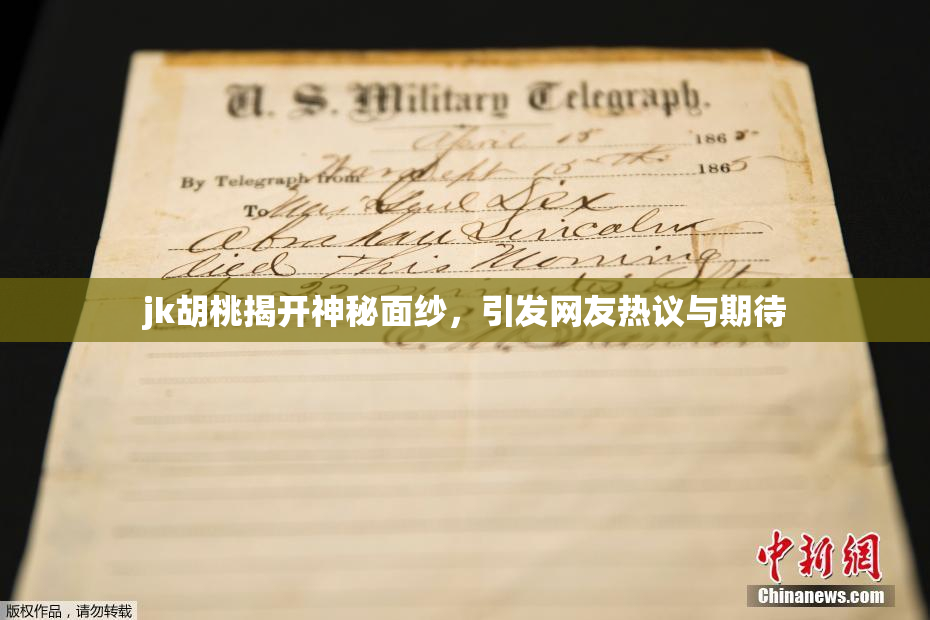 U. S. Military Telegraph.
April 15 1865
By Telegraph from War Dept 15th 1865
To Maj Genl Dix
Abraham Lincoln
died This Morning
at 22 minutes after
jk胡桃揭开神秘面纱，引发网友热议与期待
E. M. Stanton
中新网
Chinanews.com
版权作品，请勿转载